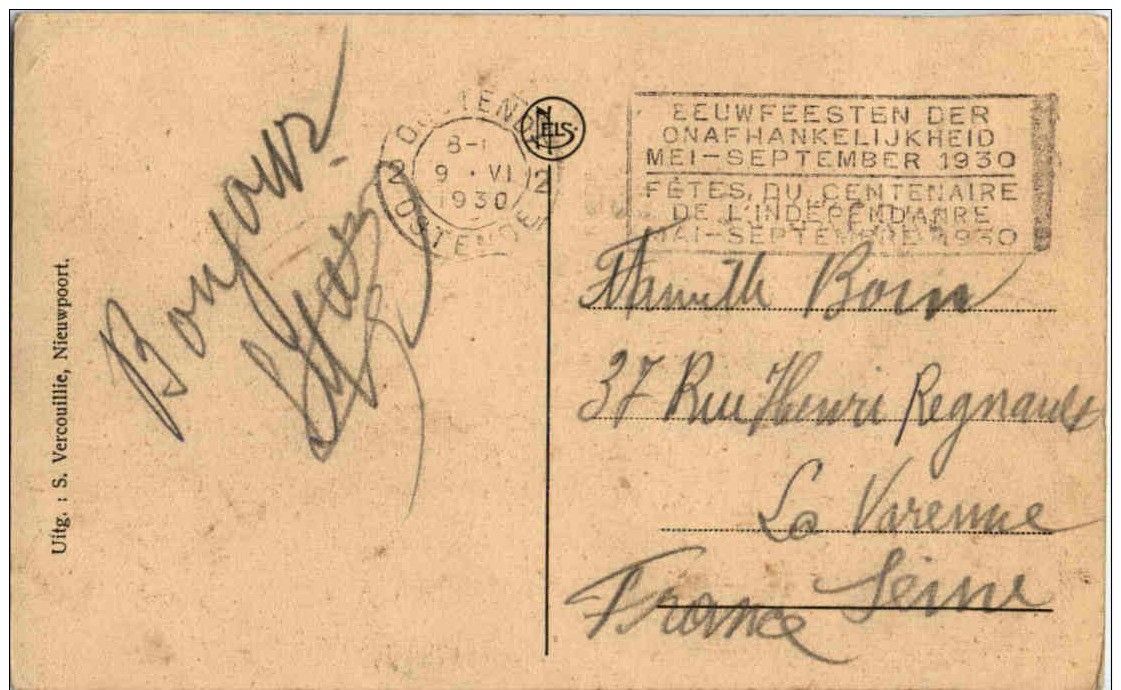 Uitg. : S. Vercouillie, Nieuwpoort.
Bonjour
OOSTENDE
8-
9 · VI
1930
2 2
OSTENDE
NELS.
EEUWFEESTEN DER
ONAFHANKELIJKHEID
MEI-SEPTEMBER 1930
FÊTES DU CENTENAIRE
DE L'INDÉPENDANCE
MAI-SEPTEMBRE 1930
Famille
37 Rue Henri Regnault
La Varenne
Seine
France